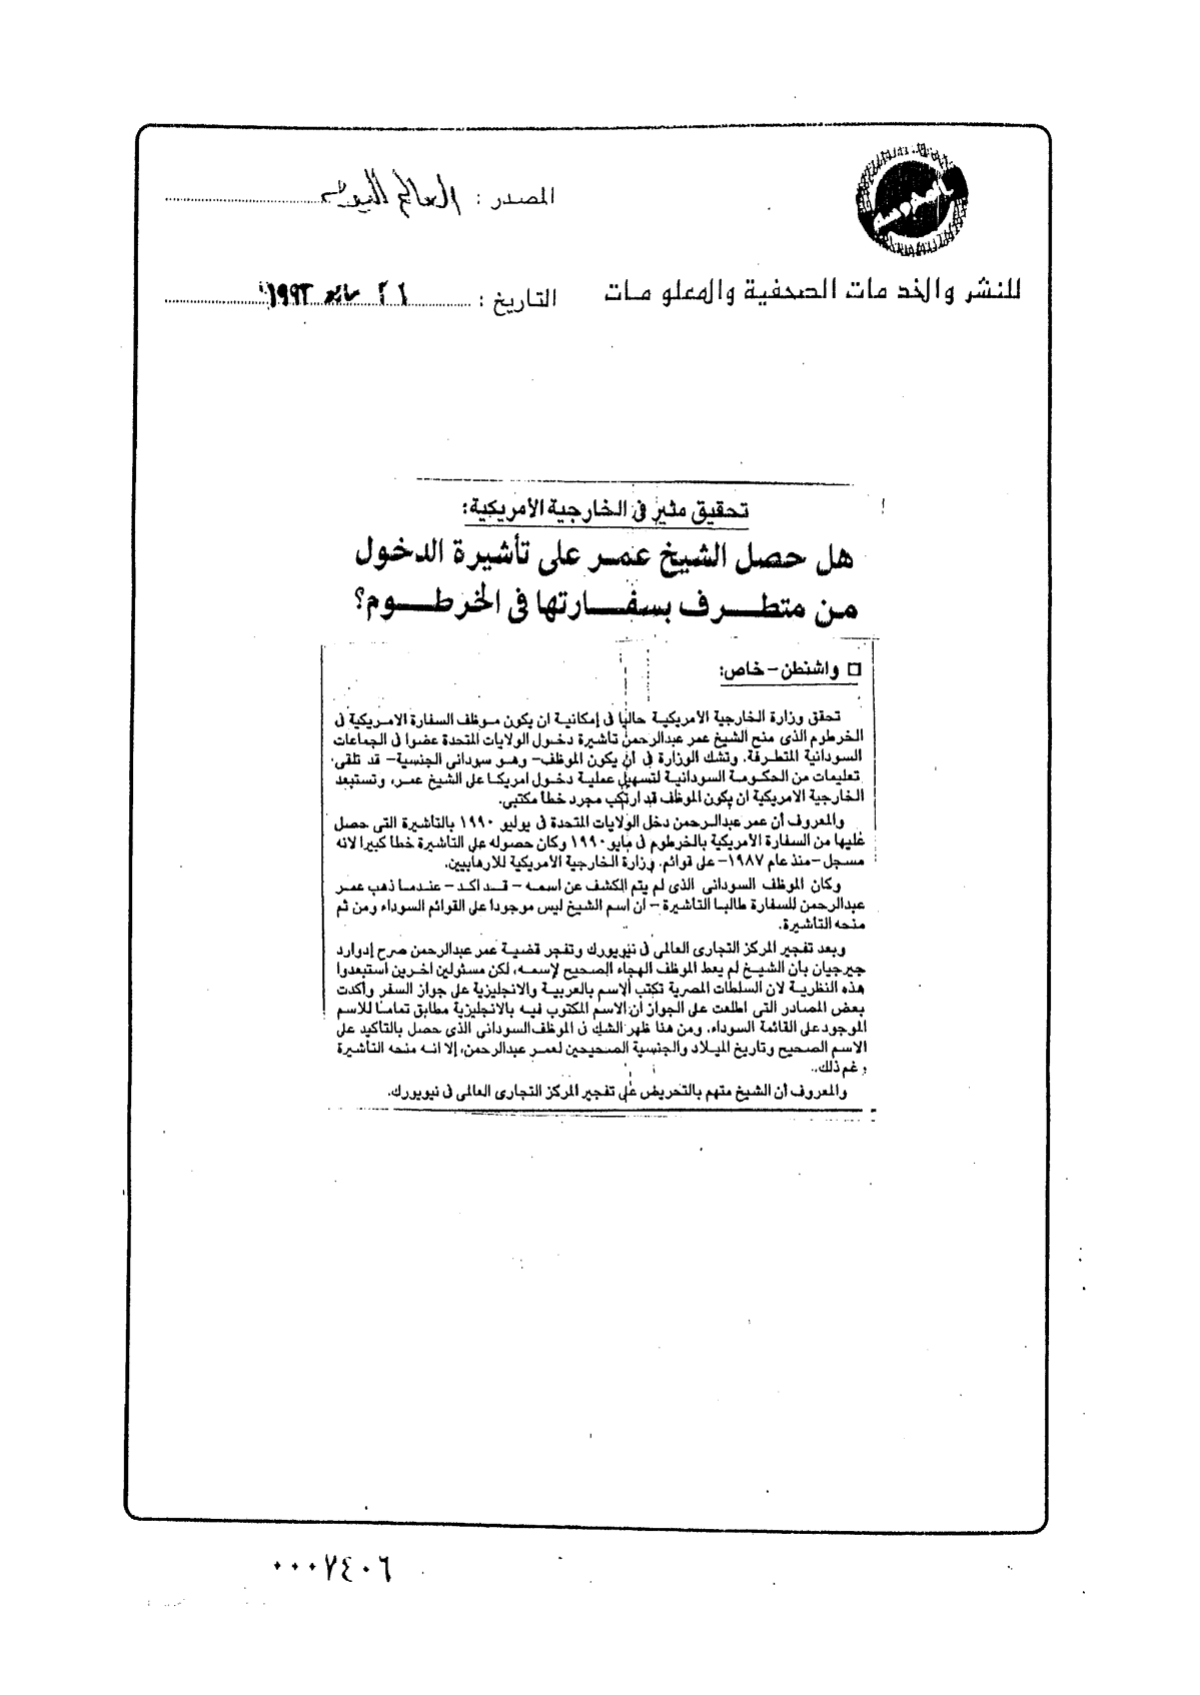 المصدر : العالم اليوم
للنشر والخدمات الصحفية والمعلومات
التاريخ : ٢٦ مايو ١٩٩٣
تحقيق مثير فى الخارجية الأمريكية:
هل حصل الشيخ عمر على تأشيرة الدخول
من متطرف بسفارتها فى الخرطوم؟
□ واشنطن - خاص:
تحقق وزارة الخارجية الأمريكية حاليا فى إمكانية ان يكون موظف السفارة الامريكية فى
الخرطوم الذى منح الشيخ عمر عبدالرحمن تأشيرة دخول الولايات المتحدة عضوا فى الجماعات
السودانية المتطرفة. وتشك الوزارة فى أن يكون الموظف - وهو سودانى الجنسية - قد تلقى
تعليمات من الحكومة السودانية لتسهيل عملية دخول امريكا على الشيخ عمر، وتستبعد
الخارجية الامريكية ان يكون الموظف قد ارتكب مجرد خطأ مكتبى.
والمعروف أن عمر عبدالرحمن دخل الولايات المتحدة فى يوليو ١٩٩٠ بالتأشيرة التى حصل
عليها من السفارة الأمريكية بالخرطوم فى مايو ١٩٩٠ وكان حصوله على التأشيرة خطأ كبيرا لانه
مسجل - منذ عام ١٩٨٧ - على قوائم. وزارة الخارجية الأمريكية للارهابيين.
وكان الموظف السودانى الذى لم يتم الكشف عن اسمه - قد اكد - عندما ذهب عمر
عبدالرحمن للسفارة طالبا التأشيرة - ان اسم الشيخ ليس موجودا على القوائم السوداء ومن ثم
منحه التأشيرة.
وبعد تفجير المركز التجارى العالمى فى نيويورك وتفجر قضية عمر عبدالرحمن صرح إدوارد
جيرجيان بأن الشيخ لم يعط الموظف الهجاء الصحيح لإسمه، لكن مسئولين اخرين استبعدوا
هذه النظرية لان السلطات المصرية تكتب الإسم بالعربية والانجليزية على جواز السفر وأكدت
بعض المصادر التى اطلعت على الجواز أن الاسم المكتوب فيه بالانجليزية مطابق تماما للاسم
الموجود على القائمة السوداء. ومن هنا ظهر الشك فى الموظف السودانى الذى حصل بالتأكيد على
الاسم الصحيح وتاريخ الميلاد والجنسية الصحيحين لعمر عبدالرحمن، إلا انه منحه التأشيرة
رغم ذلك..
والمعروف أن الشيخ متهم بالتحريض على تفجير المركز التجارى العالمى فى نيويورك.
٠٠٠٧٤٠٦